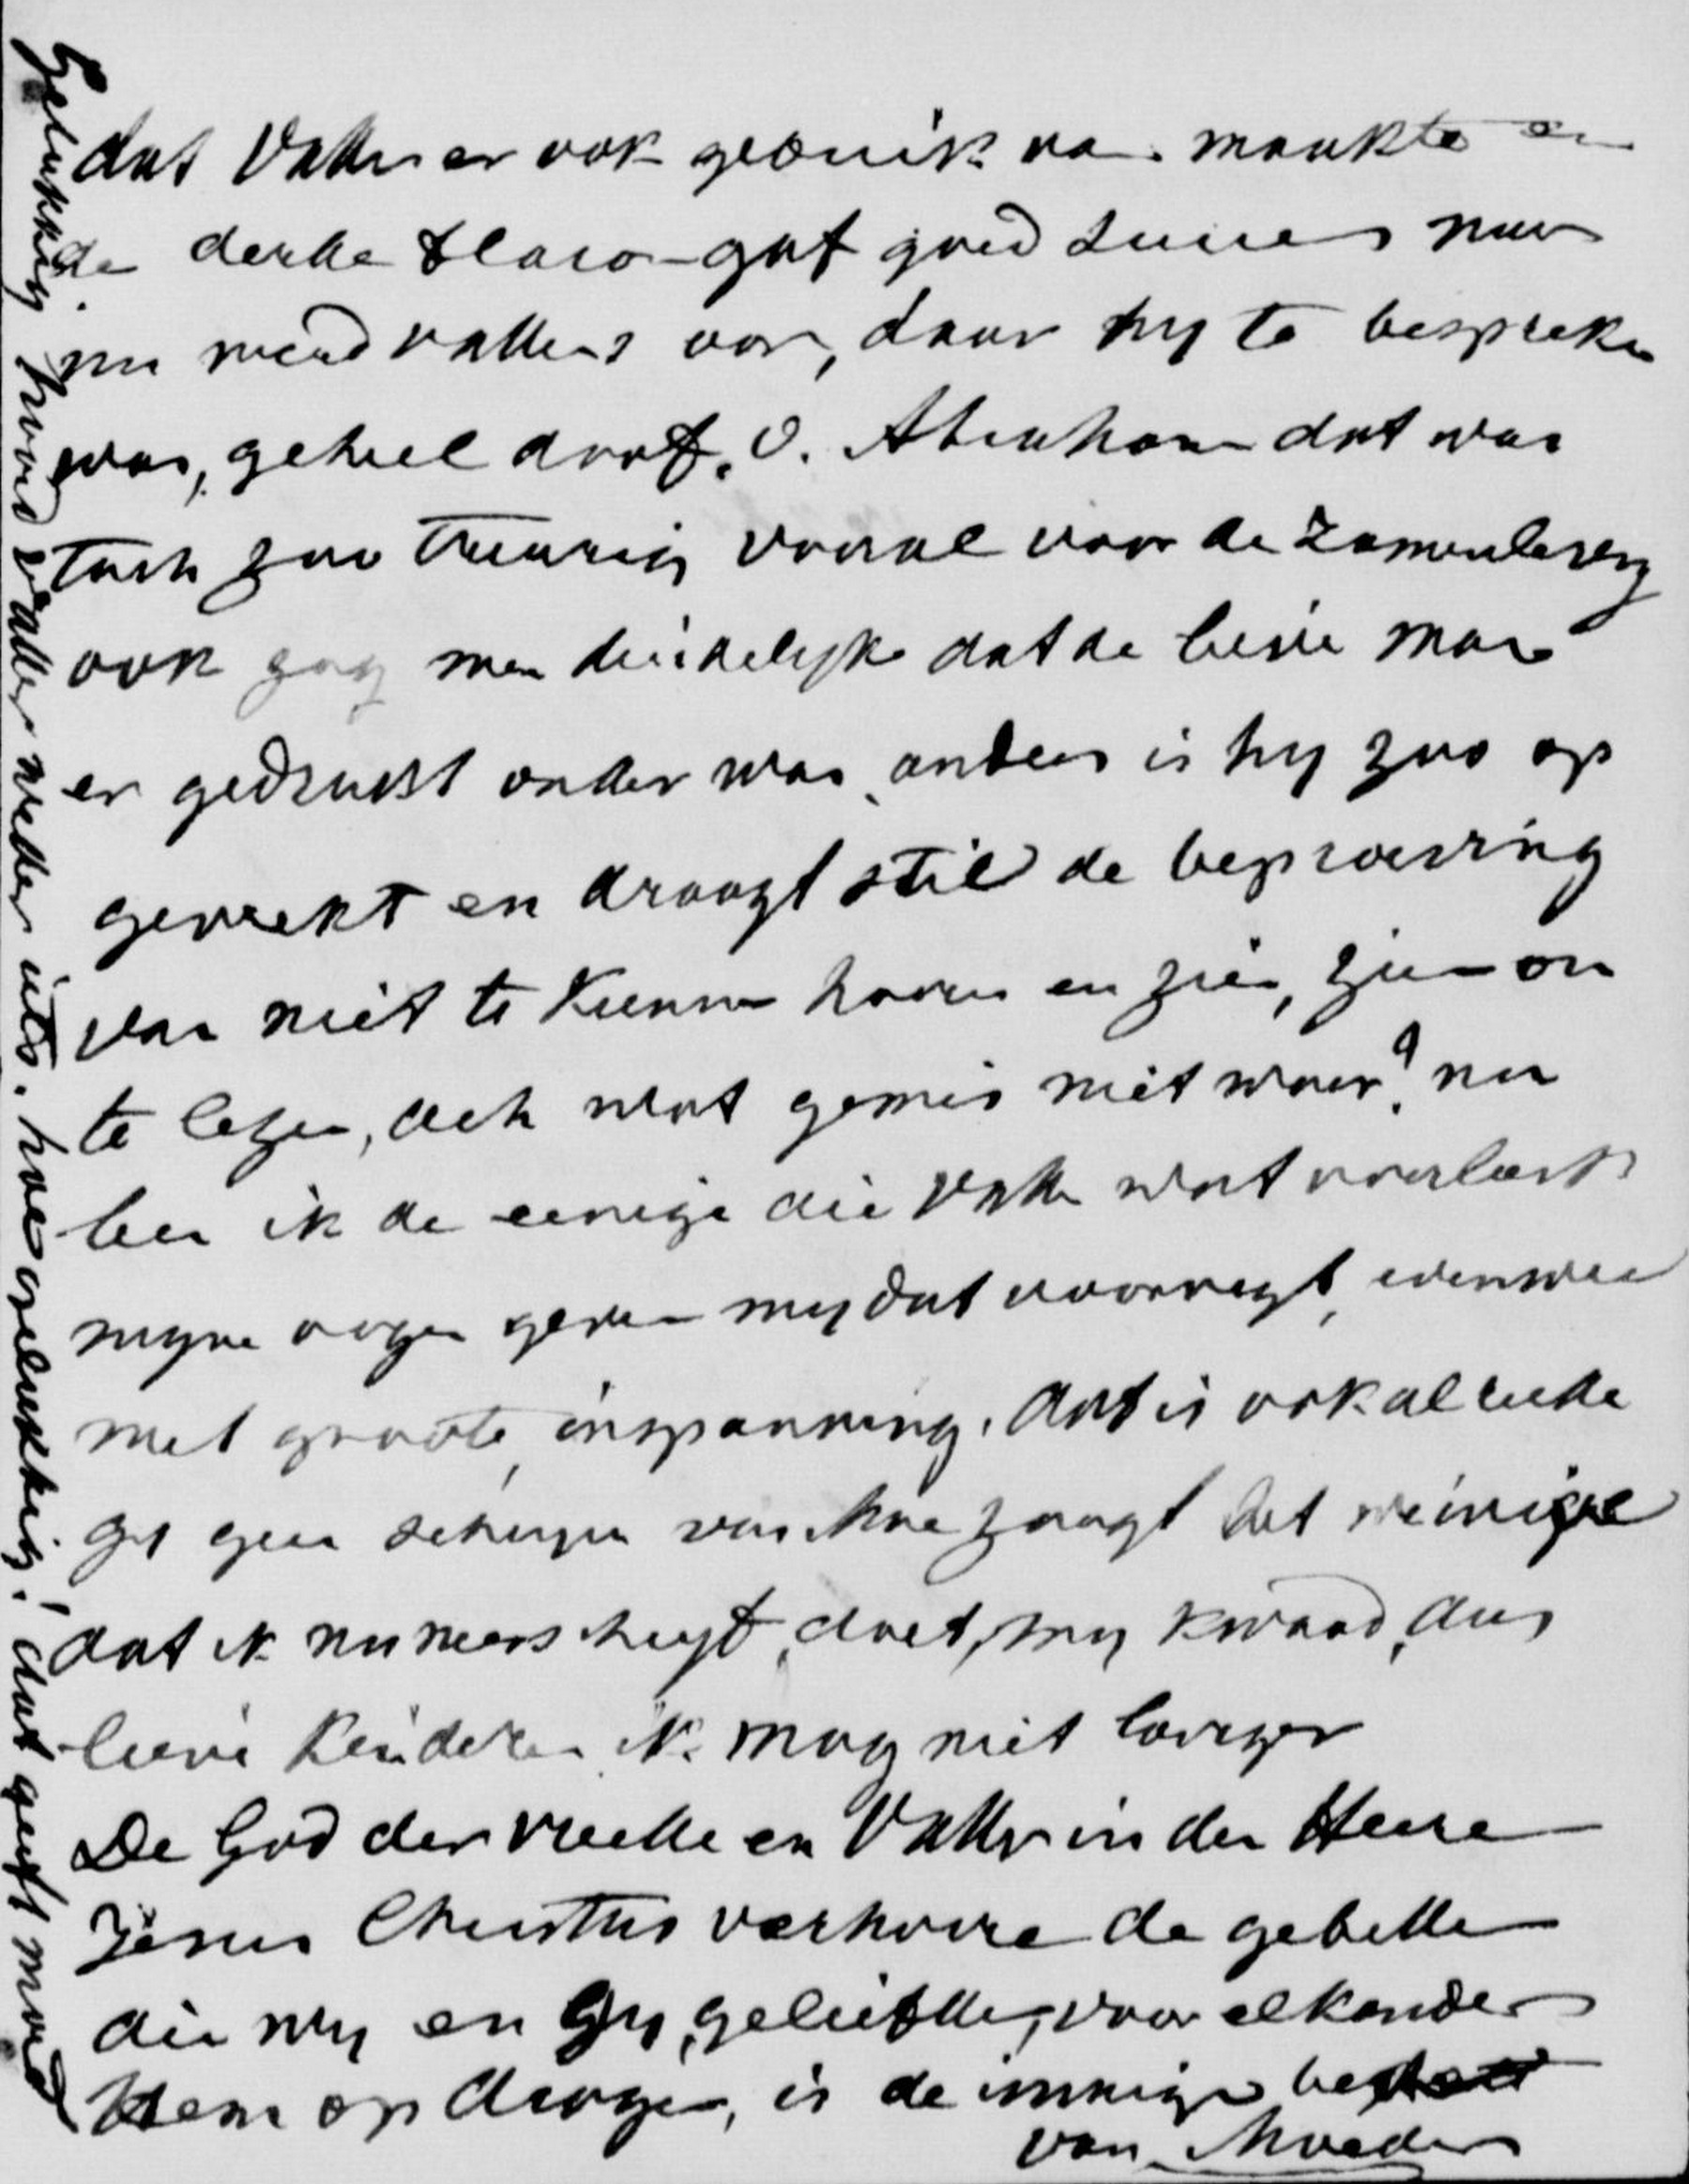 dat Vader er ook gebruik van maakte en
de derde gaf goed succes maar
nu weer vallens oor, daar hy te bespreken
was, geheel doof. O. Abraham dat was
toch zoo treurig vooral voor de Zamenlezing
ook zag men duidelyke dat de lieve man
er gedrukt onder was, anders is hy zoo op
gewekt en draagt stil de beproeving
van niet te kunnen hooren en zien, zien om
te lezen, ach wat gemis niet waar? nu
ben ik de eenige die Vader wat voorleest
myne oogen geven my dat voorregt, evenwel
met groote inspanning. dat is ook al reede
geen schryven van hoe zaagt het weinige
dat ik nu neerschryft, doet my kwaad, dus
lieve Kinderen ik mag niet langer
De God der vrede en Vader in den Heere
Jesus Christus verhoore de gebeden
die wy en Gy, geliefden, voor elkander
Hem op dragen, is de innige bede
van Moeder
Gelukkig hoord Vader weder iets. hoe gelukkig! dat geeft moed